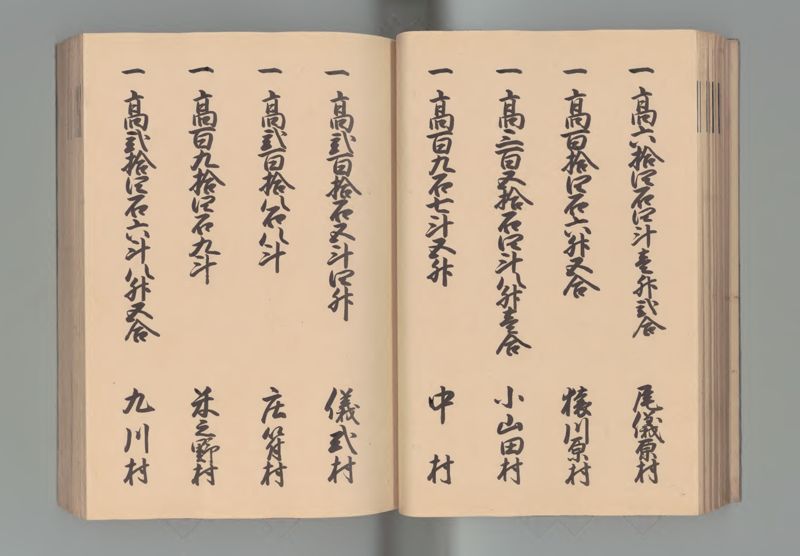 一高六拾四石四斗壱升弐合 尾儀原村
一高百拾四石六升五合 猿川原村
一高三百五拾石四斗八升壱合 小山田村
一高百九石七斗五升 中村
一高弐百拾石五斗四升 儀式村
一高弐百拾八石八斗 庄筲村
一高百九拾四石九斗 米之野村
一高弐拾四石六斗八升五合 九川村